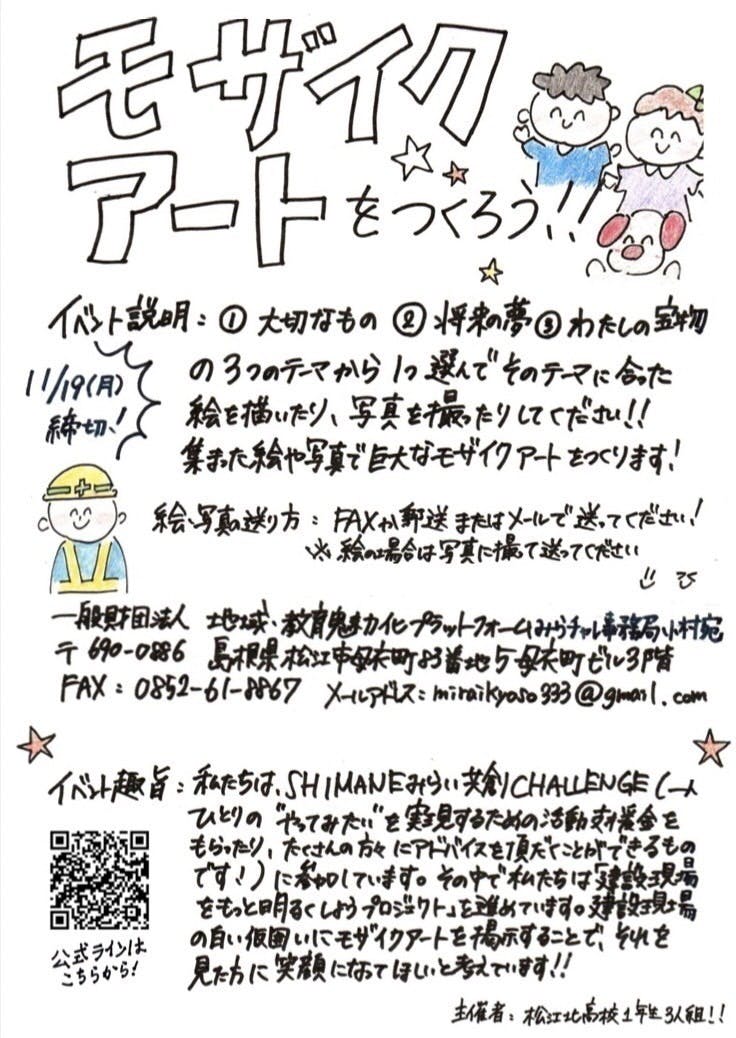 モザイク
アートをつくろう!!
イベント説明:① 大切なもの ② 将来の夢 ③ わたしの宝物
の3つのテーマから1つ選んでそのテーマに合った
絵を描いたり、写真を撮ったりしてください!!
集まった絵や写真で巨大なモザイクアートをつくります!
11/19(月)
締切!
絵・写真の送り方:FAXか郵送またはメールで送ってください!
※絵の場合は写真に撮って送ってください
一般財団法人 地域・教育魅力化プラットフォームみらチャレ事務局小村宛
〒690-0886 島根県松江市母衣町83番地5母衣町ビル3階
FAX:0852-61-8867 メールアドレス:miraikyoso333@gmail.com
イベント趣旨:私たちは、SHIMANEみらい共創CHALLENGE(一人
ひとりの"やってみたい"を実現するための活動支援金を
もらったり、たくさんの方々にアドバイスを頂だくことができるもの
です!)に参加しています。その中で私たちは「建設現場
をもっと明るくしようプロジェクト」を進めています。建設現場
の白い仮囲いにモザイクアートを掲示することで、それを
見た方に笑顔になってほしいと考えています!!
公式ラインは
こちらから!
主催者:松江北高校1年生3人組!!